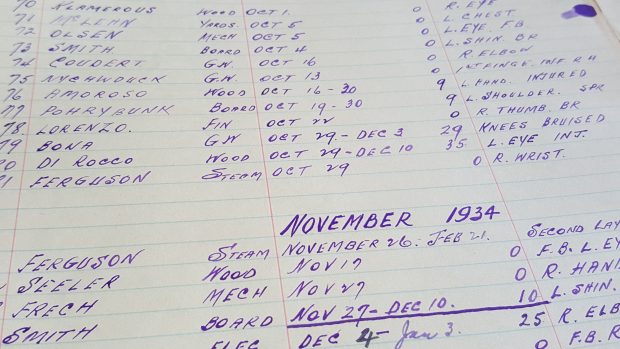 70 KLAMEROUS WOOD OCT 1. R. EYE
71 McLEHN YARDS OCT 5 0 L. CHEST
72 OLSEN MECH OCT 5 0 L. EYE, F.B
73 SMITH BOARD OCT 4 0 L. SHIN. BR
74 COUDERT G.W. OCT 16 0 R. ELBOW
75 NYCHWDUCK G.W OCT 13 0 INF R H
76 AMOROSO WOOD OCT 16-30 9 L. HAND. INJURED
77 POHRYBUNK BOARD OCT 19-30 9 L. SHOULDER. SPR
78. LORENZO. FIN OCT 22 0 R. THUMB. BR
79 BONA GW OCT 29-DEC 3 29 KNEES BRUISED
80 DI ROCCO WOOD OCT 29-DEC 10 35 L. EYE INJ.
81 FERGUSON STEAM OCT 29 0 R. WRIST.
NOVEMBER 1934
FERGUSON STEAM NOVEMBER 26. FEB 21. SECOND LAY
SEELER WOOD NOV 17 0 F.B. L. EY
FRECH MECH NOV 27 0 R. HAN
SMITH BOARD NOV 27-DEC 10. 10 L. SHIN.
ELEC DEC 4- Jan 3. 25 R. ELB
0 F.B. R